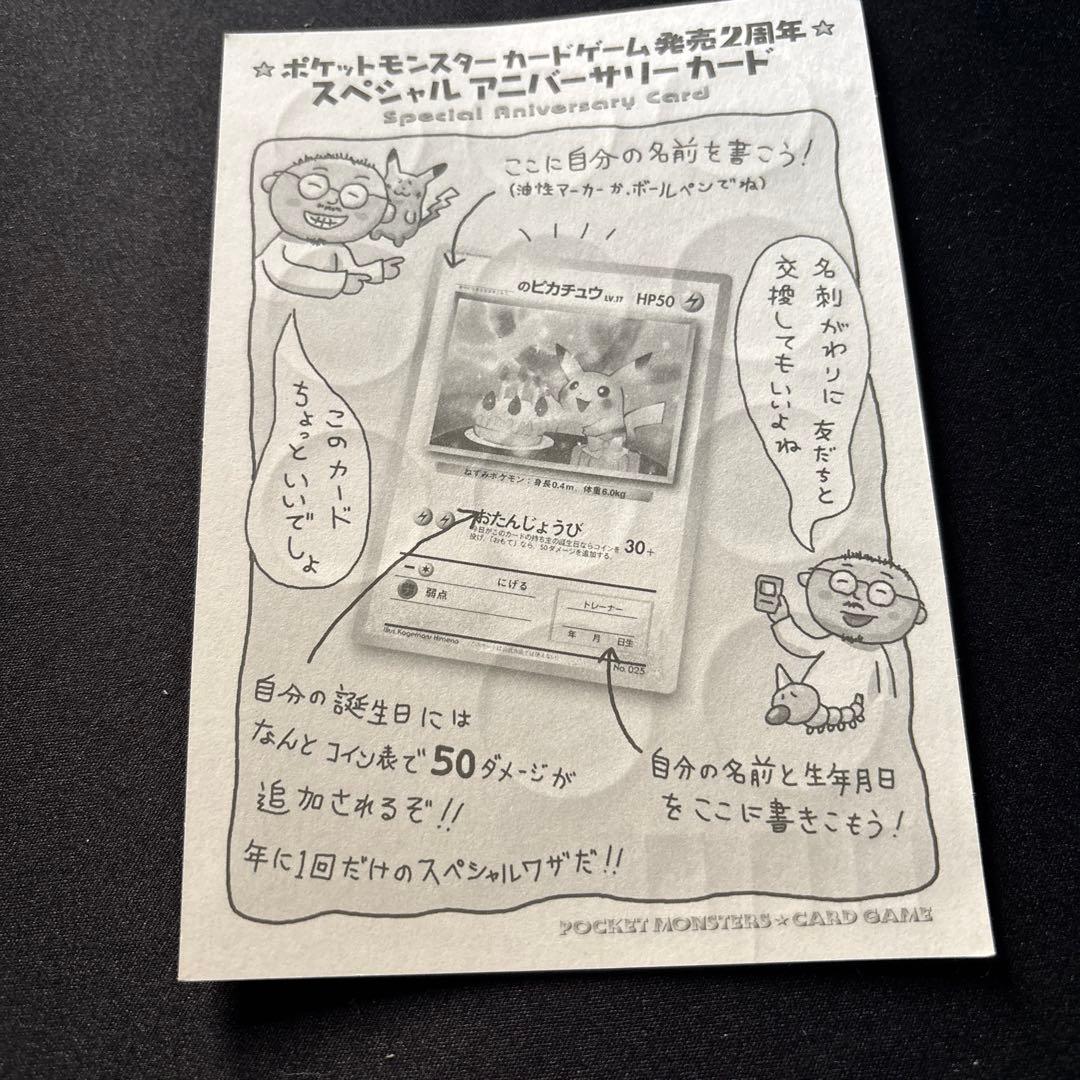 ☆ポケットモンスターカードゲーム発売2周年☆
スペシャル アニバーサリーカード
Special Aniversary Card
ここに自分の名前を書こう!
(油性マーカーか、ボールペンでね)
名刺がわりに友だちと
交換してもいいよね
このカード
ちょっといいでしょ
のピカチュウ LV.17 HP50
ねずみポケモン:身長0.4m、体重6.0kg
おたんじょうび 30+
今日がこのカードの持ち主の誕生日ならコインを
投げ、「おもて」なら、50ダメージを追加する。
にげる
弱点
トレーナー
年 月 日生
Illus. Kagemaru Himeno
No. 025
自分の誕生日には
なんとコイン表で50ダメージが
追加されるぞ!!
年に1回だけのスペシャルワザだ!!
自分の名前と生年月日
をここに書きこもう!
POCKET MONSTERS☆CARD GAME